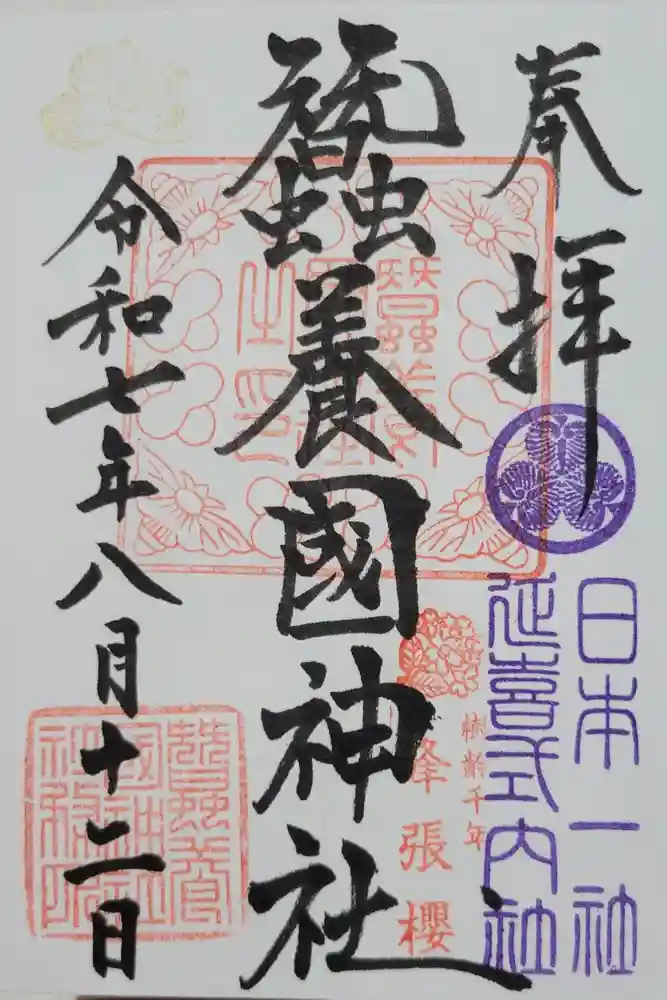 奉拝
日本一社
延喜式内社
蠶養國神社
樹齢千年
峰張櫻
令和七年八月十二日